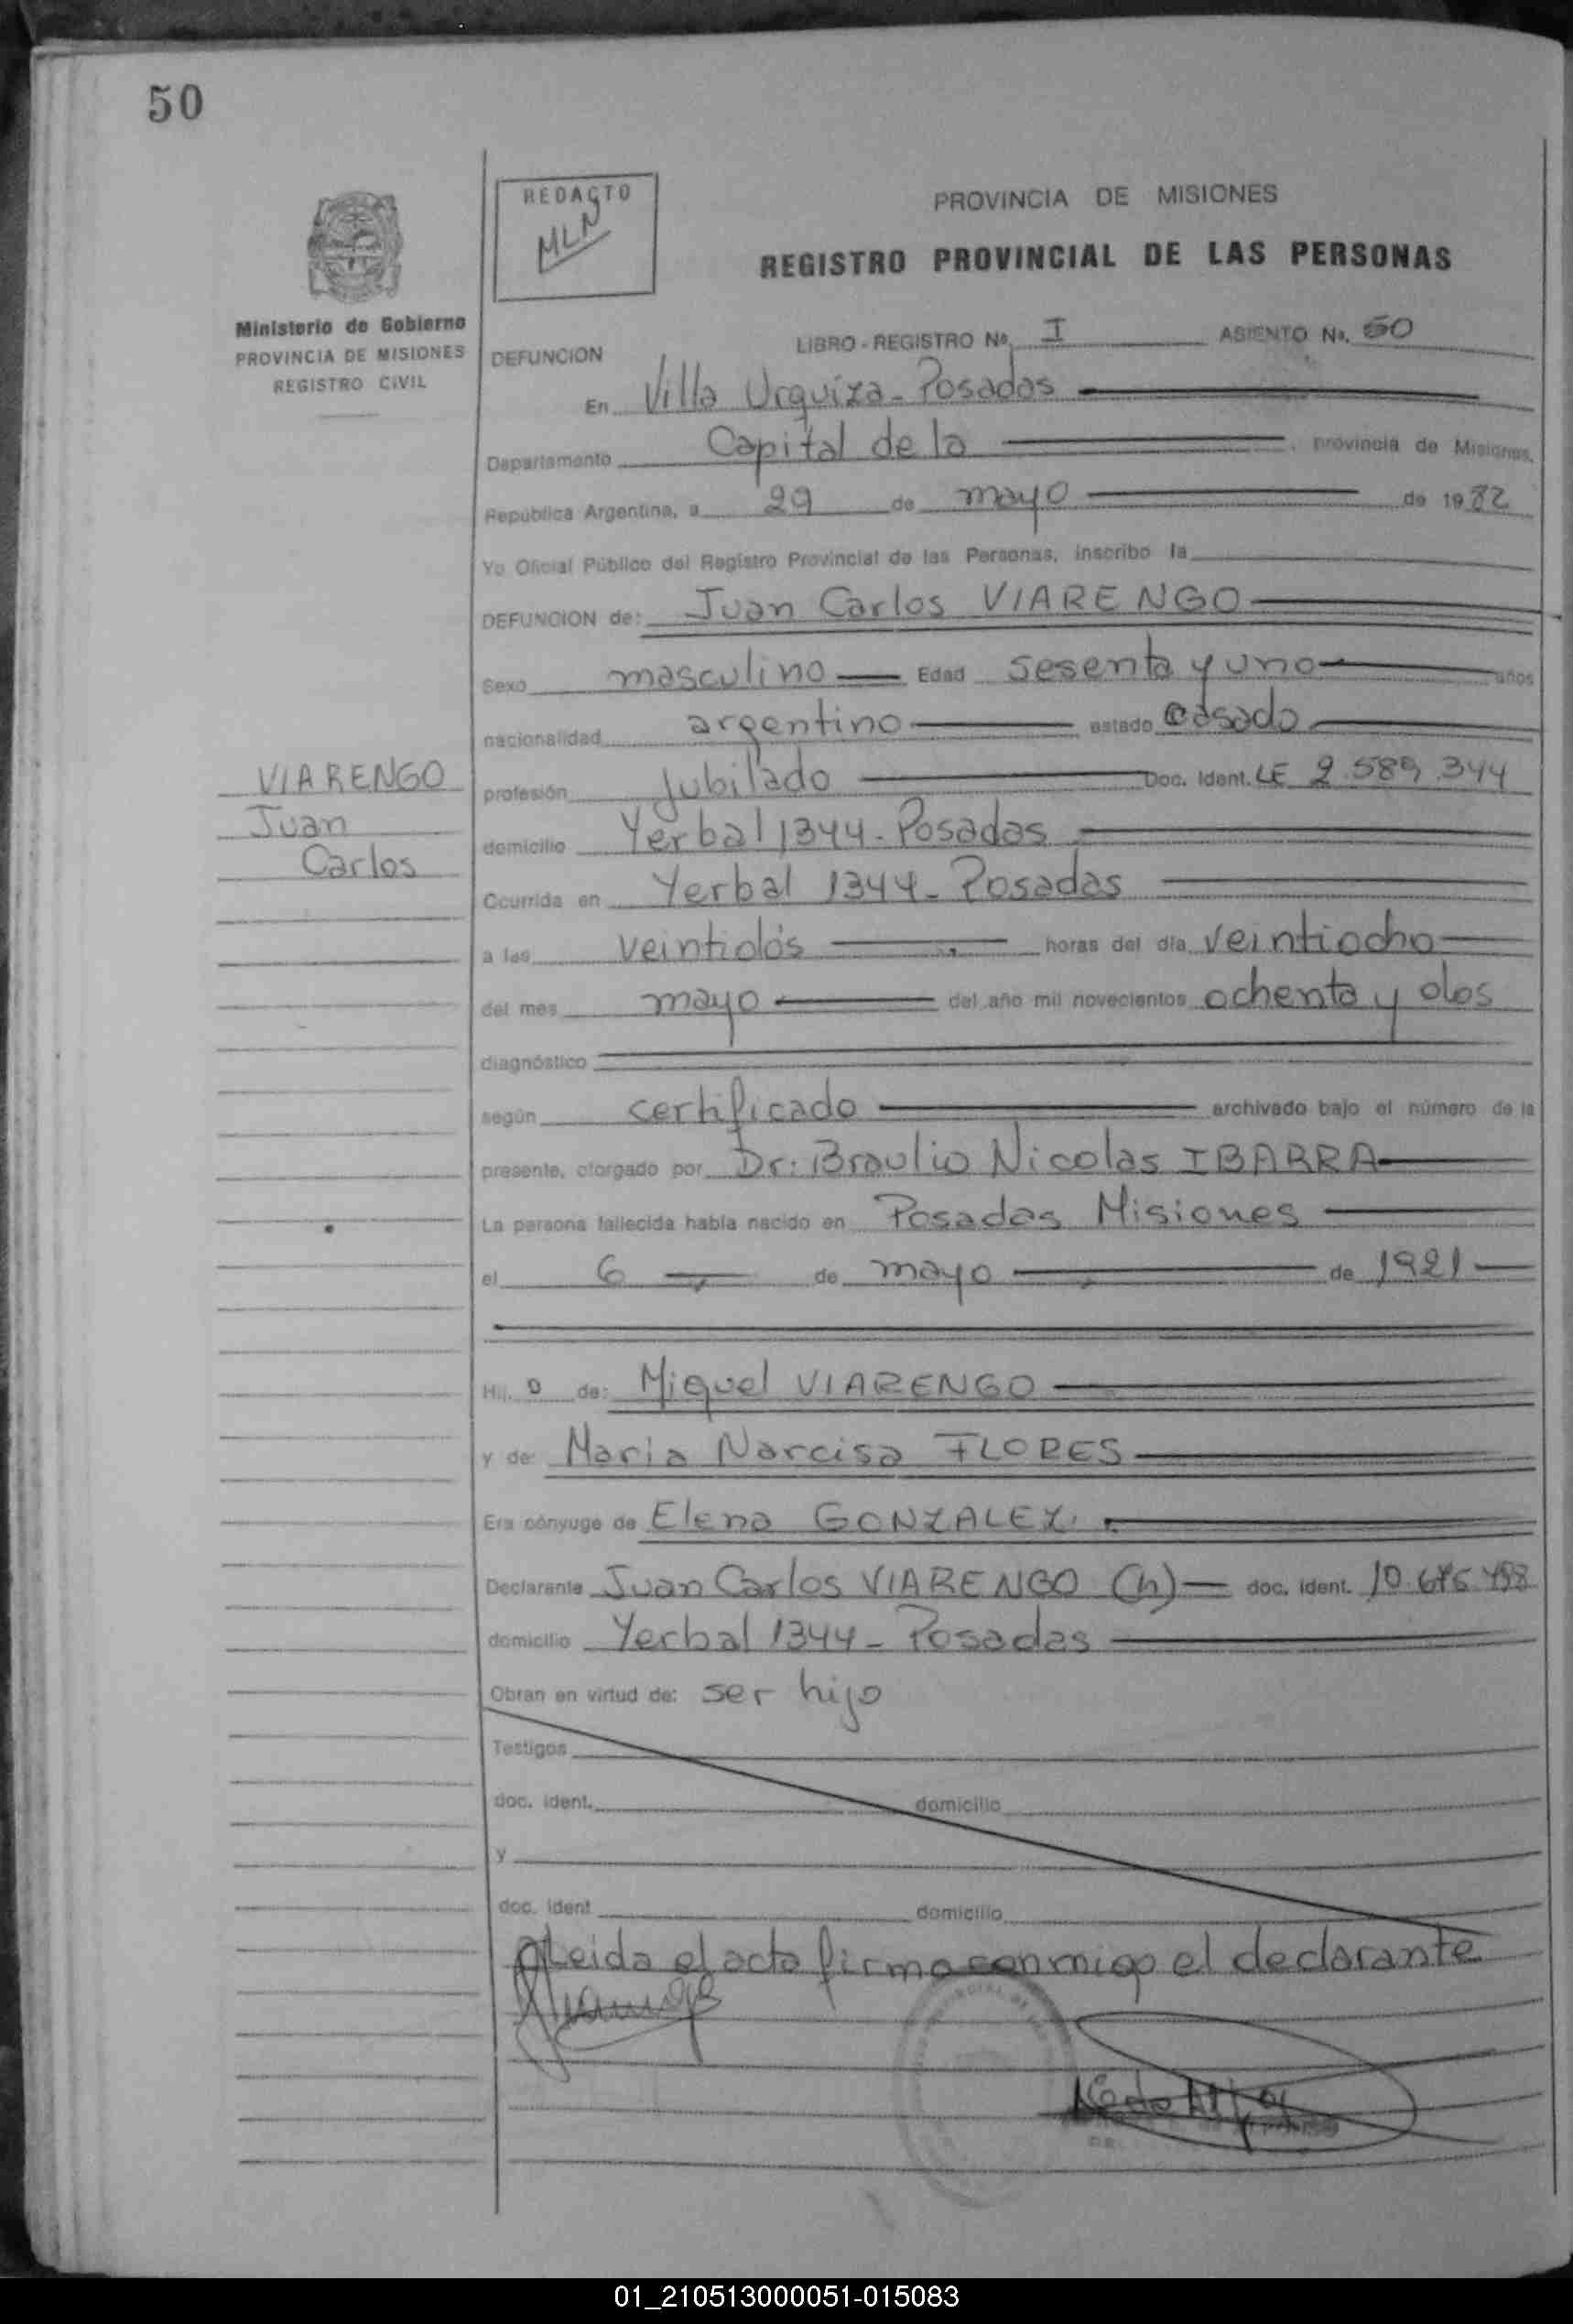 50
REDACTO
MLN
PROVINCIA DE MISIONES
REGISTRO PROVINCIAL DE LAS PERSONAS
Ministerio de Gobierno
PROVINCIA DE MISIONES
REGISTRO CIVIL
DEFUNCION
LIBRO - REGISTRO No. I ASIENTO No. 50
En Villa Urquiza - Posadas
Departamento Capital de la provincia de Misiones,
República Argentina, a 29 de mayo de 1982
Yo Oficial Público del Registro Provincial de las Personas, inscribo la
DEFUNCION de: Juan Carlos VIARENGO
Sexo masculino Edad sesenta y uno años
nacionalidad argentino estado casado
VIARENGO
Juan
Carlos
profesión Jubilado Doc. Ident. LE 2.589.344
domicilio Yerbal 1344 - Posadas
Ocurrida en Yerbal 1344 - Posadas
a las veintidós horas del día veintiocho
del mes mayo del año mil novecientos ochenta y dos
diagnóstico
según certificado archivado bajo el número de la
presente, otorgado por Dr: Braulio Nicolas IBARRA
La persona fallecida había nacido en Posadas Misiones
el 6 de mayo de 1921
Hij. o de: Miguel VIARENGO
y de: Maria Narcisa FLORES
Era cónyuge de Elena GONZALEZ
Declarante Juan Carlos VIARENGO (h) doc. ident. 10.
domicilio Yerbal 1344 - Posadas
Obran en virtud de: ser hijo
Testigos
doc. ident. domicilio
y
doc. ident domicilio
Leida el acta firma conmigo el declarante
01_210513000051-015083